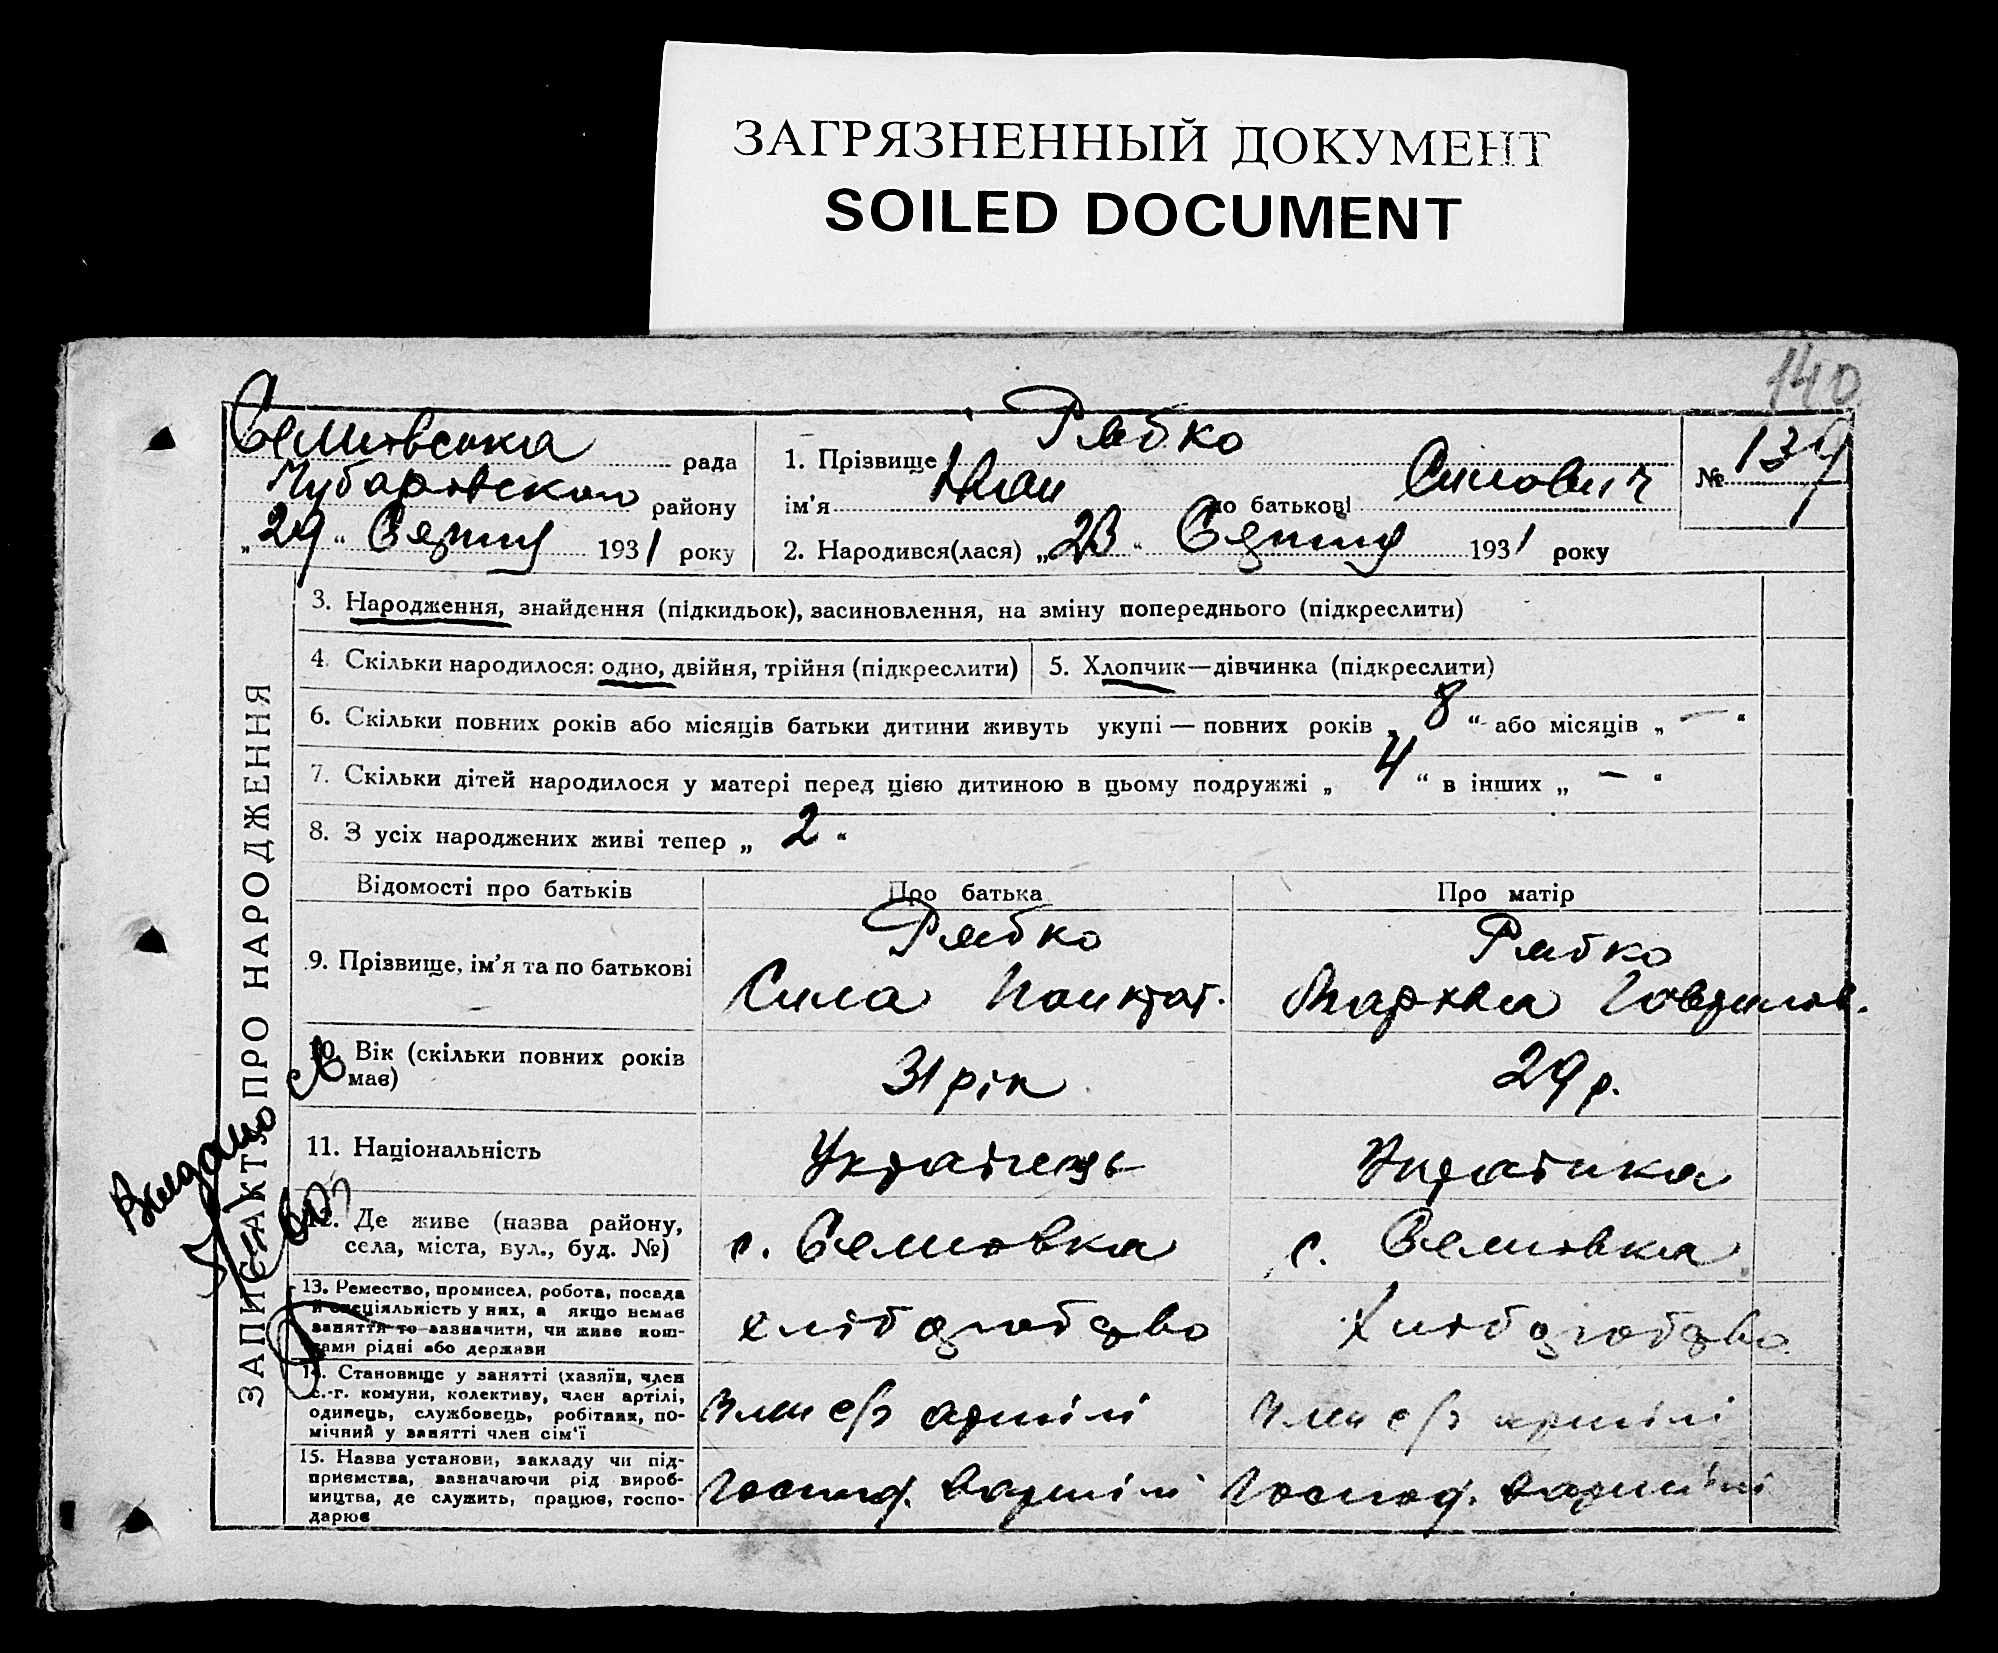 ЗАГРЯЗНЕННЫЙ ДОКУМЕНТ
SOILED DOCUMENT
140
Семлівська рада
Чубарівского району
„29“ Серпня 1931 року
1. Прізвище Рябко
ім'я Іван по батькові Силович
2. Народився(лася) „23“ Серпня 1931 року
№ 137
ЗАПИС АКТ. ПРО НАРОДЖЕННЯ
3. Народження, знайдення (підкидьок), засиновлення, на зміну попереднього (підкреслити)
4. Скільки народилося: одно, двійня, трійня (підкреслити)
5. Хлопчик—дівчинка (підкреслити)
6. Скільки повних років або місяців батьки дитини живуть укупі — повних років „8“ або місяців „—“
7. Скільки дітей народилося у матері перед цією дитиною в цьому подружжі „4“ в інших „—“
8. З усіх народжених живі тепер „2“
Відомості про батьків Про батька Про матір
9. Прізвище, ім'я та по батькові
Рябко
Сила Панкрат.
Рябко
Гаврилов.
10. Вік (скільки повних років
має)
31 рік
29 р.
11. Національність
Українець
Українка
12. Де живе (назва району,
села, міста, вул., буд. №)
с. Семлівка
с. Семлівка
13. Ремество, промисел, робота, посада
й спеціяльність у них, а якщо немає
заняття то зазначити, чи живе кош-
тами рідні або держави
хліборобство
Хліборобство
14. Становище у занятті (хазяїн, член
с.-г. комуни, колективу, член артілі,
одинець, службовець, робітник, по-
мічний у занятті член сім'ї
Член с/г артілі
Член с/г артілі
15. Назва установи, закладу чи під-
приємства, зазначаючи рід вироб-
ництва, де служить, працює, госпо-
дарює
Господ. в артілі
Господ. в артілі
Видано